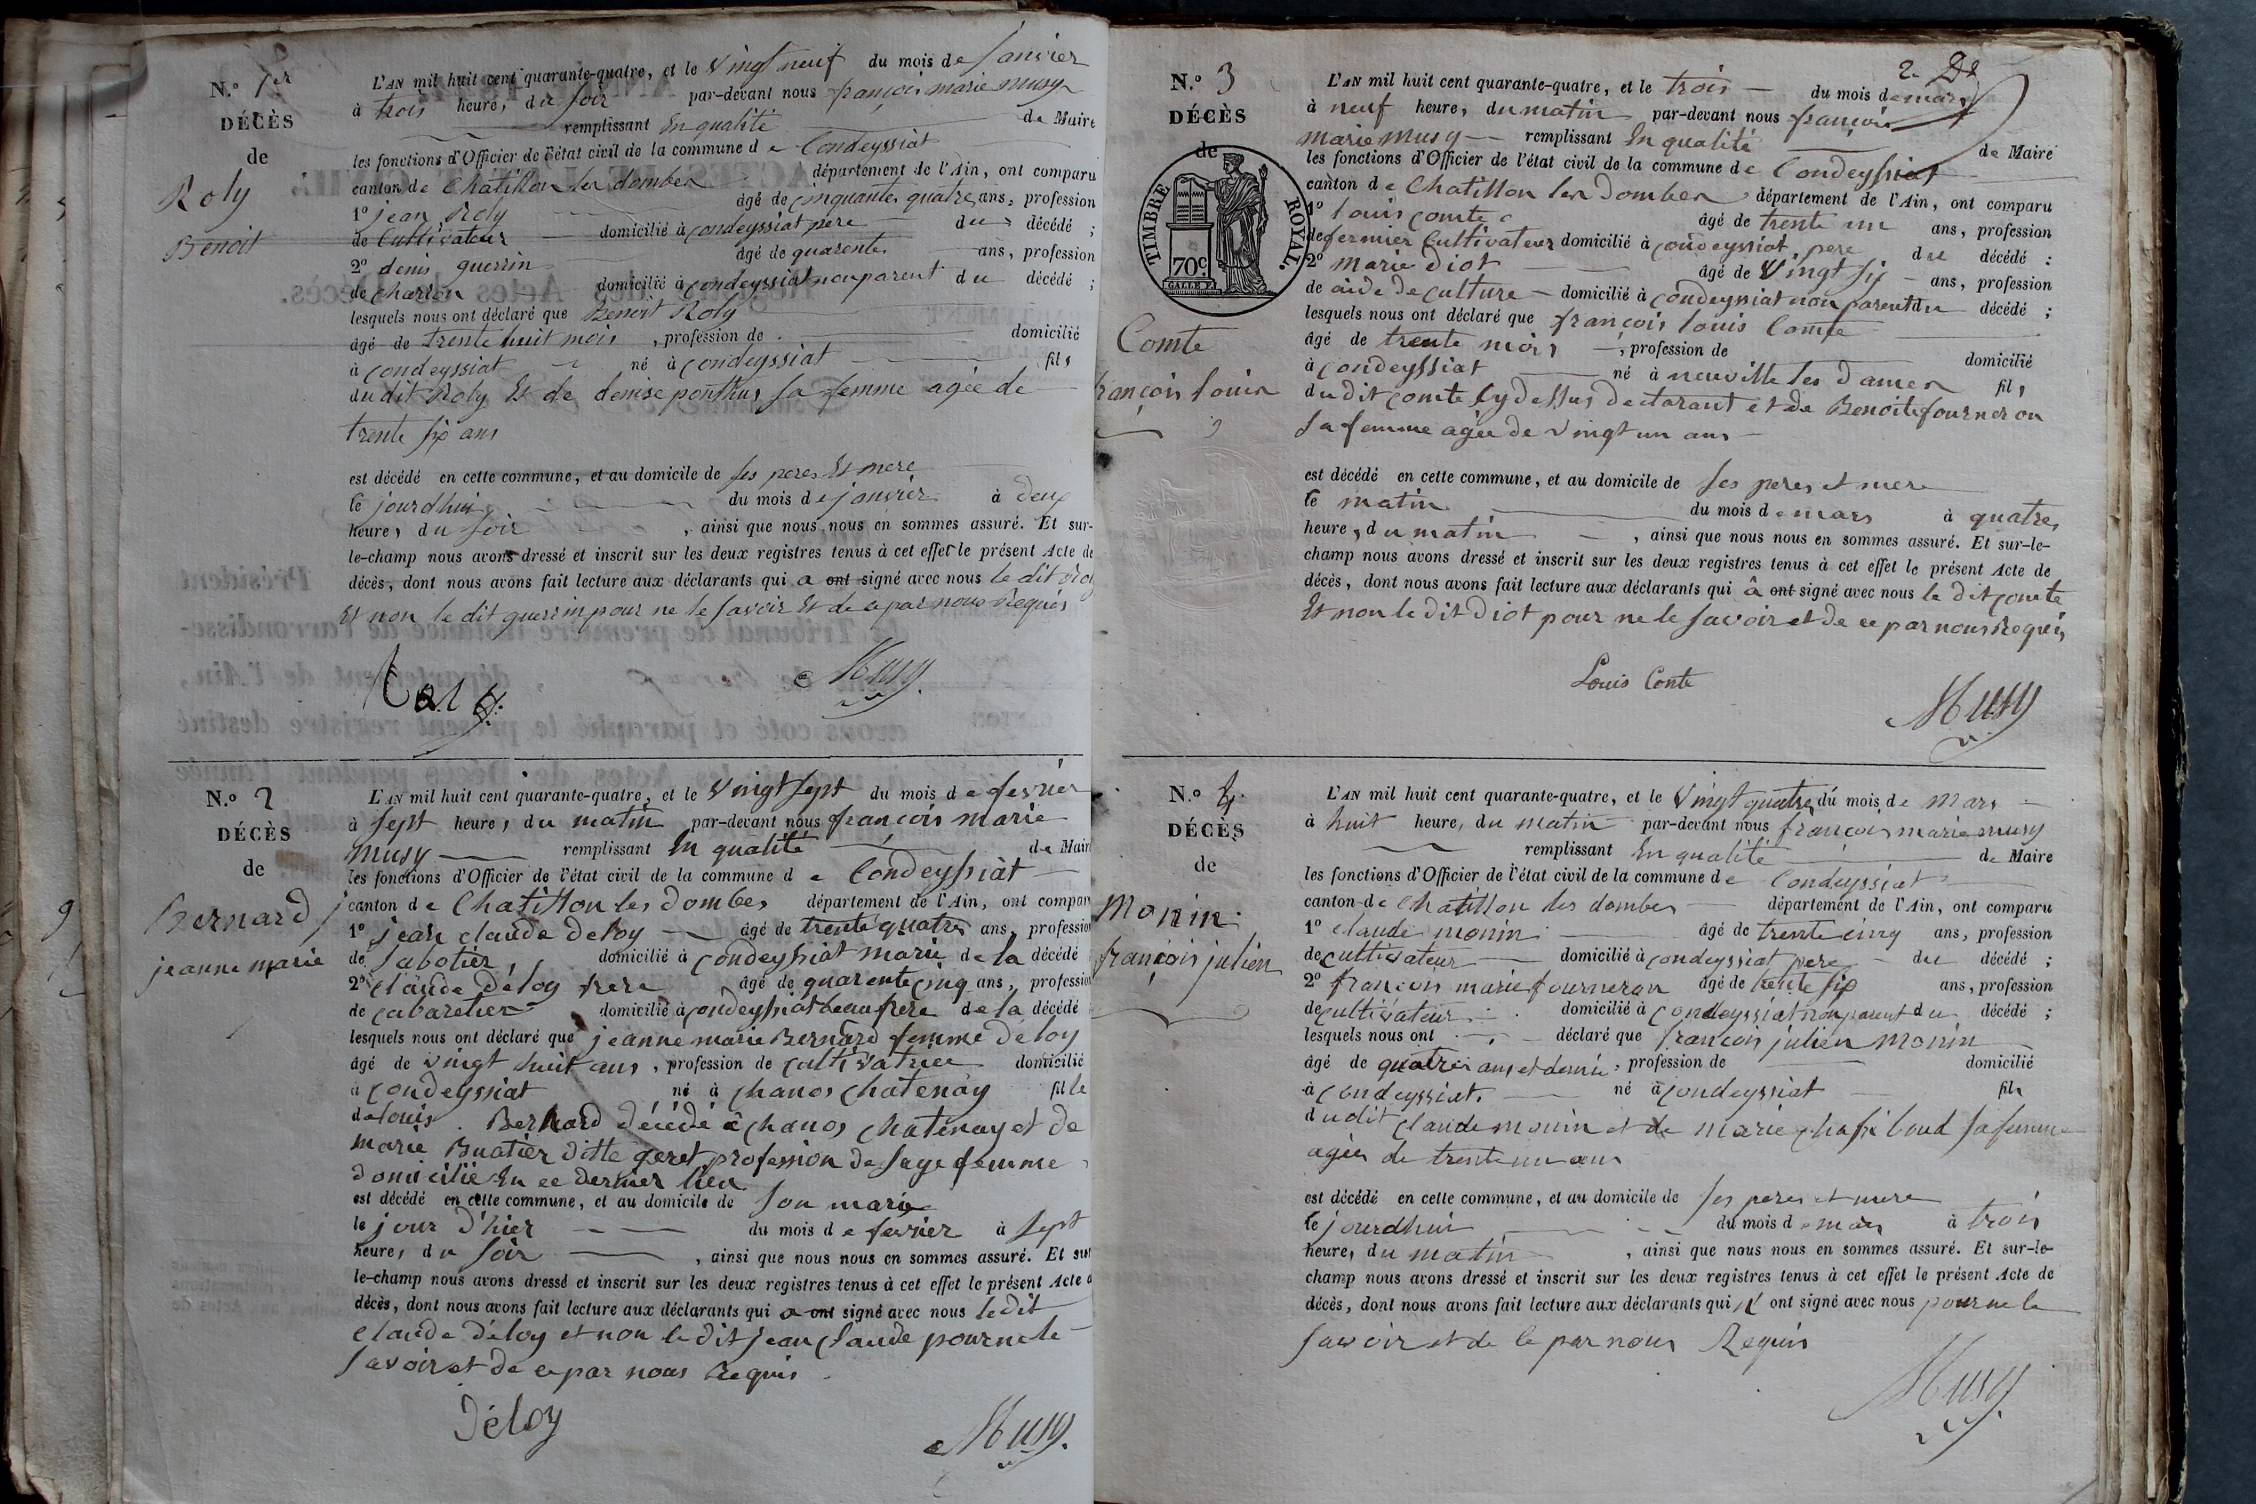 N.o 1er
DÉCÈS
de
Roly
Benoit
L'AN mil huit cent quarante-quatre, et le vingt neuf du mois de Janvier
à trois heures du soir par-devant nous françois marie musy
remplissant En qualité de Maire
les fonctions d'Officier de l'état civil de la commune de Condeyssiat
canton de Chatillon les dombes département de l'Ain, ont comparu
1o jean Roly âgé de cinquante quatre ans, profession
de Cultivateur domicilié à condeyssiat pere du décédé ;
2o denis guerrin âgé de quarente ans, profession
de charon domicilié à condeyssiat non parent du décédé ;
lesquels nous ont déclaré que Benoit Roly
âgé de trente huit mois, profession de domicilié
à condeyssiat né à condeyssiat fils
du dit Roly Et de denise ponthus sa femme agée de
trente six ans
est décédé en cette commune, et au domicile de ses peres Et mere
le jourdhui du mois de janvier à deux
heures du soir, ainsi que nous nous en sommes assuré. Et sur-
le-champ nous avons dressé et inscrit sur les deux registres tenus à cet effet le présent Acte de
décès, dont nous avons fait lecture aux déclarants qui a ont signé avec nous le dit
Et non le dit guerrin pour ne le savoir Et de ce par nous Requis
Roly
Musy
N.o 2
DÉCÈS
de
Bernard
jeanne marie
L'AN mil huit cent quarante-quatre, et le vingt sept du mois de fevrier
à sept heures du matin par-devant nous françois marie
musy remplissant En qualité de Maire
les fonctions d'Officier de l'état civil de la commune de Condeyssiat
canton de Chatillon les dombes département de l'Ain, ont comparu
1o jean claude deloy âgé de trente quatre ans, profession
de sabotier, domicilié à condeyssiat marie de la décédé
2o claude déloy frere âgé de quarente cinq ans, profession
de cabaretier domicilié à condeyssiat beau frere de la décédé
lesquels nous ont déclaré que jeanne marie Bernard femme déloy
âgé de vingt huit ans, profession de cultivatrice domicilié
à condeyssiat né à chanos chatenay fille
de louis Bernard décédé à chanos chatenay et de
marie Buatier ditte geret profession de sage femme
domicilié En ce dernier lieu
est décédé en cette commune, et au domicile de son marie
le jour d'hier du mois de fevrier à sept
heures du soir, ainsi que nous nous en sommes assuré. Et sur
le-champ nous avons dressé et inscrit sur les deux registres tenus à cet effet le présent Acte
décès, dont nous avons fait lecture aux déclarants qui a ont signé avec nous le dit
claude déloy et non le dit jean claude pour ne le
savoir et de ce par nous Requis
Déloy
Musy.
2e
N.o 3
DÉCÈS
de
TIMBRE ROYAL.
70c
Comte
françois louis
L'AN mil huit cent quarante-quatre, et le trois du mois de mars
à neuf heures du matin par-devant nous françois
marie musy remplissant En qualité de Maire
les fonctions d'Officier de l'état civil de la commune de Condeyssiat
canton de Chatillon les Dombes département de l'Ain, ont comparu
1o louis comte âgé de trente un ans, profession
de fermier Cultivateur domicilié à condeyssiat pere du décédé :
2o marie diot âgé de vingt six ans, profession
de aide de culture domicilié à condeyssiat non parent du décédé ;
lesquels nous ont déclaré que françois louis Comte
âgé de trente mois, profession de domicilié
à condeyssiat né à neuville les Dames fils
du dit comte Cy dessus déclarant et de Benoite fourneron
sa femme agée de vingt un ans
est décédé en cette commune, et au domicile de ses peres et mere
le matin du mois de mars à quatre
heures du matin, ainsi que nous nous en sommes assuré. Et sur-le-
champ nous avons dressé et inscrit sur les deux registres tenus à cet effet le présent Acte de
décès, dont nous avons fait lecture aux déclarants qui â ont signé avec nous le dit comte
Et non le dit Diot pour ne le savoir et de ce par nous Requis
Louis Conte
Musy
N.o 4
DÉCÈS
de
Monin
françois julien
L'AN mil huit cent quarante-quatre, et le vingt quatre du mois de mars
à huit heures du matin par-devant nous françois marie musy
remplissant En qualité de Maire
les fonctions d'Officier de l'état civil de la commune de Condeyssiat
canton de Chatillon les dombes département de l'Ain, ont comparu
1o claude monin âgé de trente cinq ans, profession
de cultivateur domicilié à condeyssiat pere du décédé ;
2o françois marie fourneron âgé de trente six ans, profession
de cultivateur domicilié à condeyssiat non parent du décédé ;
lesquels nous ont déclaré que françois julien Monin
âgé de quatre ans et demie, profession de domicilié
à condeyssiat né à condeyssiat fils
du dit claude monin et de marie chassiboud sa femme
agée de trente un ans
est décédé en cette commune, et au domicile de ses peres et mere
le jourdhui du mois de mars à trois
heures du matin, ainsi que nous nous en sommes assuré. Et sur-le-
champ nous avons dressé et inscrit sur les deux registres tenus à cet effet le présent Acte de
décès, dont nous avons fait lecture aux déclarants qui n' ont signé avec nous pour ne le
savoir et de ce par nous Requis
Musy